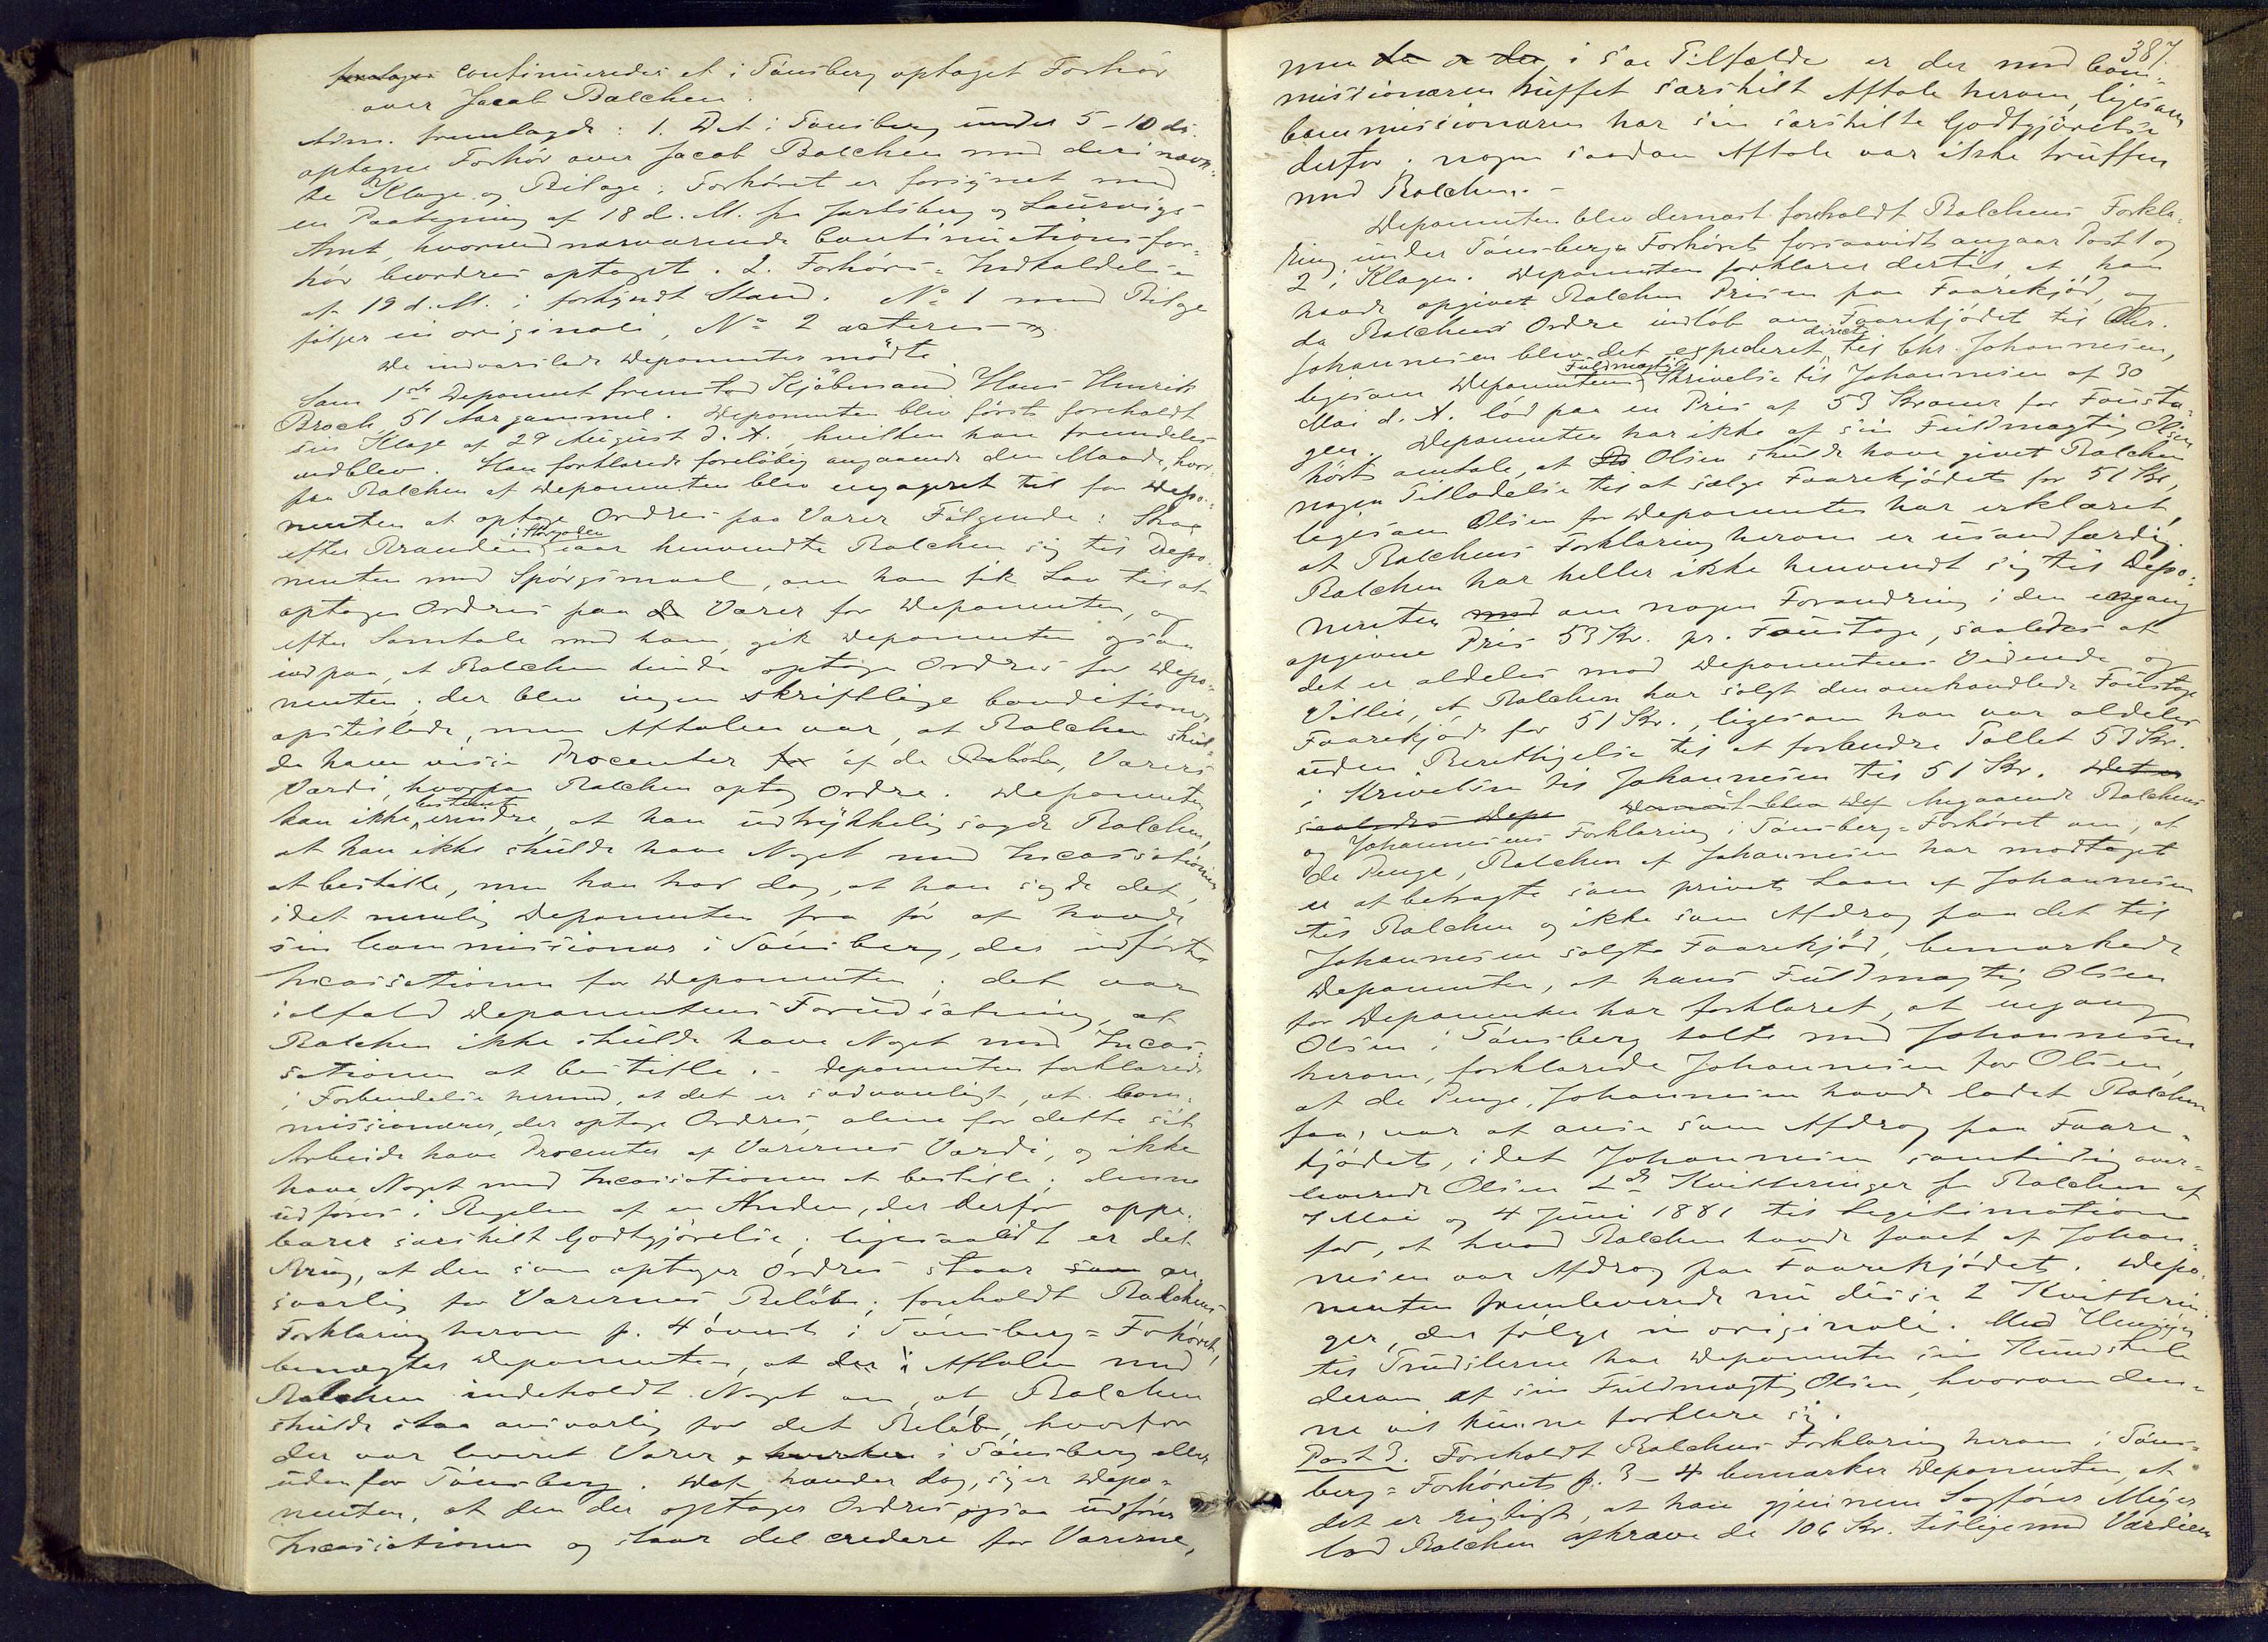 continueredes et i Tönsberg optaget Forhör
over Jacob Balchen.
Adm. fremlagde: 1. Det i Tönsberg under 5-10 ds.
optagne Forhör over Jacob Balchen med deri nævn-
te Klage og Bilage; Forhöret er forsynet med
en Paategning af 18 d. M. fra Jarlsberg og Laurvigs
Amt, hvorved nærværende Continuationsfor-
hör beordres optaget. 2. Forhörs-Indkaldelse
af 19 d. M. i forkyndt Stand. No 1 med Bilage
fölger in originali, No 2 acteres
De indvarslede Deponenter mödte
Som 1ste Deponent fremstod Kjöbmand Hans Henrik
Broch, 51 Aar gammel. Deponenten blev först foreholdt
sin Klage af 29 August d. A., hvilken han fremdeles
vedblev. Han forklarede foreløbig angaaende den Maade, hvor-
paa Balchen af Deponenten blev engageret til for Depo-
nenten at optage Ordres paa Varer Fölgende: Strax
efter Branden i Storgaden iaar henvendte Balchen sig til Depo-
nenten med Spörgsmaal, om han fik Lov til at
optage Ordres paa de Varer for Deponenten, og
efter Samtale med ham, gik Deponenten ogsaa
ind paa, at Balchen kunde optage Ordres for Depo-
nenten; der blev ingen skriftlige Conditioner
opstillede, men Aftalen var, at Balchen skul-
de have visse Procenter for af de Varers
Værdi, hvorpaa Balchen optog Ordre. Deponenten
kan ikke bestemt erindre, at han udtrykkelig sagde Balchen,
at han ikke skulde have Noget med Incassationen
at bestille, men han tror dog, at han sagde det,
idet nemlig Deponenten fra för af havde
sin Commissionær i Tönsberg, der udförte
Incassationen for Deponenten; det var
ialfald Deponentens Forudsætning, at
Balchen ikke skulde have Noget med Incas-
sationen at bestille. - Deponenten forklarede
i Forbindelse hermed, at det er sædvanligt, at Com-
missionærer, der optage Ordres, alene for dette sit
Arbeide have Procenter af Varernes Værdi, og ikke
have Noget med Incassationen at bestille; denne
udföres i Regelen af en Anden, der derfor oppe-
bærer særskilt Godtgjörelse; ligesaalidt er det
Brug, at den som optager Ordres staar som an-
svarlig for Varernes Belöb; foreholdt Balchens
Forklaring herom p. 4 överst i Tönsberg-Forhöret,
benægter Deponenten, at der i Aftalen med
Balchen indeholdt Noget om, at Balchen
skulde staa ansvarlig for det Belöb, hvorfor
der var leveret Varer, hverken i Tönsberg eller
udenfor Tönsberg. Det hænder dog, siger Depo-
nenten, at den der optager Ordres ogsaa udförer
Incassationen og staar del credere for Varerne,
387.
men de a de, i saa Tilfælde er der med Com-
missionæren truffet særskilt Aftale herom, ligesom
Commissionæren har sin særskilte Godtgjörelse
derfor; nogen saadan Aftale var ikke truffen
med Balchen. -
Deponenten blev dernæst foreholdt Balchens Forkla-
ring under Tönsberg-Forhöret forsaavidt angaar Post 1 og
2 i Klagen. Deponenten forklarer dertil, at han
havde opgivet Balchen Prisen paa Faarekjöd, og
da Balchens Ordre indlöb om Faarekjödet til Chr.
Johannesen blev det expederet directe til Chr. Johannesen,
ligesom Deponentens Fuldmægtigs Skrivelse til Johannesen af 30
Mai d. A. löd paa en Pris af 53 Kroner for Fousta-
gen. Deponenten har ikke af sin Fuldmægtig Olsen
hört omtale, at Olsen skulde have givet Balchen
nogen Tilladelse til at sælge Faarekjödet for 51 Kr,
ligesom Olsen for Deponenten har erklæret,
at Balchens Forklaring herom er usandfærdig.
Balchen har heller ikke henvendt sig til Depo-
nenten med om nogen Forandring i den engang
opgivne Pris 53 Kr. pr. Foustage, saaledes at
det er aldeles mod Deponentens Vidende og
Villie, at Balchen har solgt den omhandlede Foustage
Faarekjöd for 51 Kr., ligesom han var aldeles
uden Berettigelse til at forandre Tallet 53 Kr.
i Skrivelsen til Johannesen til 51 Kr. Det er
saaledes Depo Dernæst blev Def Angaaende Balchens
og Johannesens Forklaring i Tönsberg-Forhöret om, at
de Penge, Balchen af Johannesen har modtaget
er at betragte som privat Laan af Johannesen
til Balchen og ikke som Afdrag paa det til
Johannesen solgte Faarekjöd, bemærkede
Deponenten, at hans Fuldmægtig Olsen
for Deponenten har forklaret, at engang
Olsen i Tönsberg talte med Johannesen
herom, forklarede Johannesen for Olsen,
at de Penge, Johannesen havde ladet Balchen
faa, var at anse som Afdrag paa Faare-
kjödet, idet Johannesen samtidig over-
leverede Olsen 2de Kvitteringer fra Balchen af
7 Mai og 4 Juni 1881 til Legitimation
for, at hvad Balchen havde faaet af Johan-
nesen var Afdrag paa Faarekjödet. Depo-
nenten fremleverede nu disse 2 Kvitterin-
ger, der fölge in originali. Med Hensyn
til Trudslerne har Deponenten sin Kundskab
derom af sin Fuldmægtig Olsen, hvorom den-
ne vil kunne forklare sig.
Post 3. Foreholdt Balchens Forklaring herom i Töns-
berg-Forhörets p. 3-4 bemærker Deponenten, at
det er rigtigt, at han gjennem Sagförer Meyer
lod Balchen afkræve de 106 Kr. tilligemed Værdien